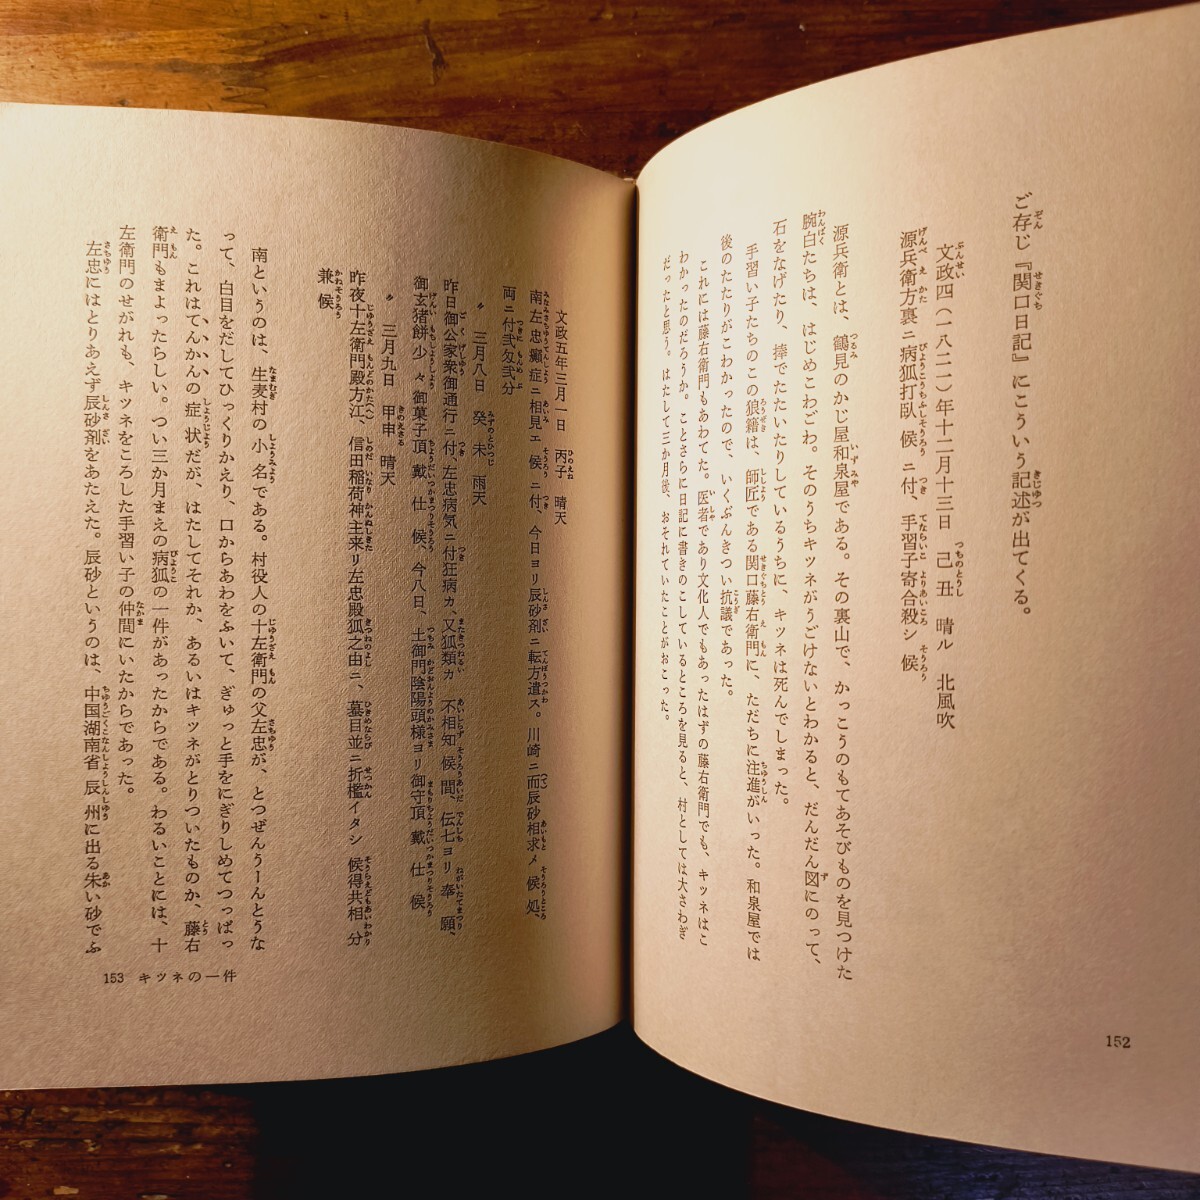 ご存じ『関口日記』にこういう記述が出てくる。
文政四(一八二一)年十二月十三日 己丑 晴ル 北風吹
源兵衛方裏ニ病狐打臥候ニ付、手習子寄合殺シ候
源兵衛とは、鶴見のかじ屋和泉屋である。その裏山で、かっこうのもてあそびものを見つけた
腕白たちは、はじめこわごわ。そのうちキツネがうごけないとわかると、だんだん図にのって、
石をなげたり、捧でたたいたりしているうちに、キツネは死んでしまった。
手習い子たちのこの狼籍は、師匠である関口藤右衛門に、ただちに注進がいった。和泉屋では
後のたたりがこわかったので、いくぶんきつい抗議であった。
これには藤右衛門もあわてた。医者であり文化人でもあったはずの藤右衛門でも、キツネはこ
わかったのだろうか。ことさらに日記に書きのこしているところを見ると、村としては大さわぎ
だったと思う。はたして三か月後、おそれていたことがおこった。
152
文政五年三月一日 丙子 晴天
南左忠癲症ニ相見エ候ニ付、今日ヨリ辰砂剤ニ転方遣ス。川崎ニ而辰砂相求メ候処、
両ニ付弐匁弐分
〃 三月八日 癸未 雨天
昨日御公家衆御通行ニ付、左忠病気ニ付狂病カ、又狐類カ 不相知候間、伝七ヨリ奉願、
御玄猪餅少々御菓子頂戴仕候、今八日、土御門陰陽頭様ヨリ御守頂戴仕候
〃 三月九日 甲申 晴天
昨夜十左衛門殿方江、信田稲荷神主来リ左忠殿狐之由ニ、墓目並ニ折檻イタシ候得共相分
兼候
南というのは、生麦村の小名である。村役人の十左衛門の父左忠が、とつぜんうーんとうな
って、白目をだしてひっくりかえり、口からあわをふいて、ぎゅっと手をにぎりしめてつっぱっ
た。これはてんかんの症状だが、はたしてそれか、あるいはキツネがとりついたものか、藤右
衛門もまよったらしい。つい三か月まえの病狐の一件があったからである。わるいことには、十
左衛門のせがれも、キツネをころした手習い子の仲間にいたからであった。
左忠にはとりあえず辰砂剤をあたえた。辰砂というのは、中国湖南省辰州に出る朱い砂でふ
153 キツネの一件